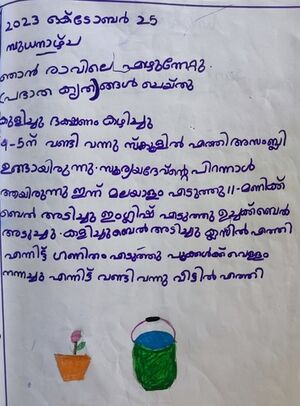 2023 ഒക്ടോബർ 25
ബുധനാഴ്ച
ഞാൻ രാവിലെ എഴുന്നേറ്റു.
(പ്രഭാത കൃത്യ)ങ്ങൾ ചെയ്തു
കുളിച്ചു ഭക്ഷണം കഴിച്ചു
9-5ന് വണ്ടി വന്നു സ്കൂളിൽ എത്തി അസംബ്ലി
ഉണ്ടായിരുന്നു. സൂര്യദേവ്ന്റെ പിറന്നാൾ
ആയിരുന്നു ഇന്ന് മലയാളം എടുത്തു 11-മണിക്ക്
ബെൽ അടിച്ചു ഇംഗ്ലീഷ് എടുത്തു ഉച്ചക്ക് ബെൽ
അടുച്ചു. കളിച്ചു ബെൽ അടിച്ചു ക്ലാസിൽ എത്തി
എന്നിട്ട് ഗണിതം എടുത്തു പൂക്കൾക്ക് വെള്ളം
നനച്ചു എന്നിട്ട് വണ്ടി വന്നു വീട്ടിൽ എത്തി